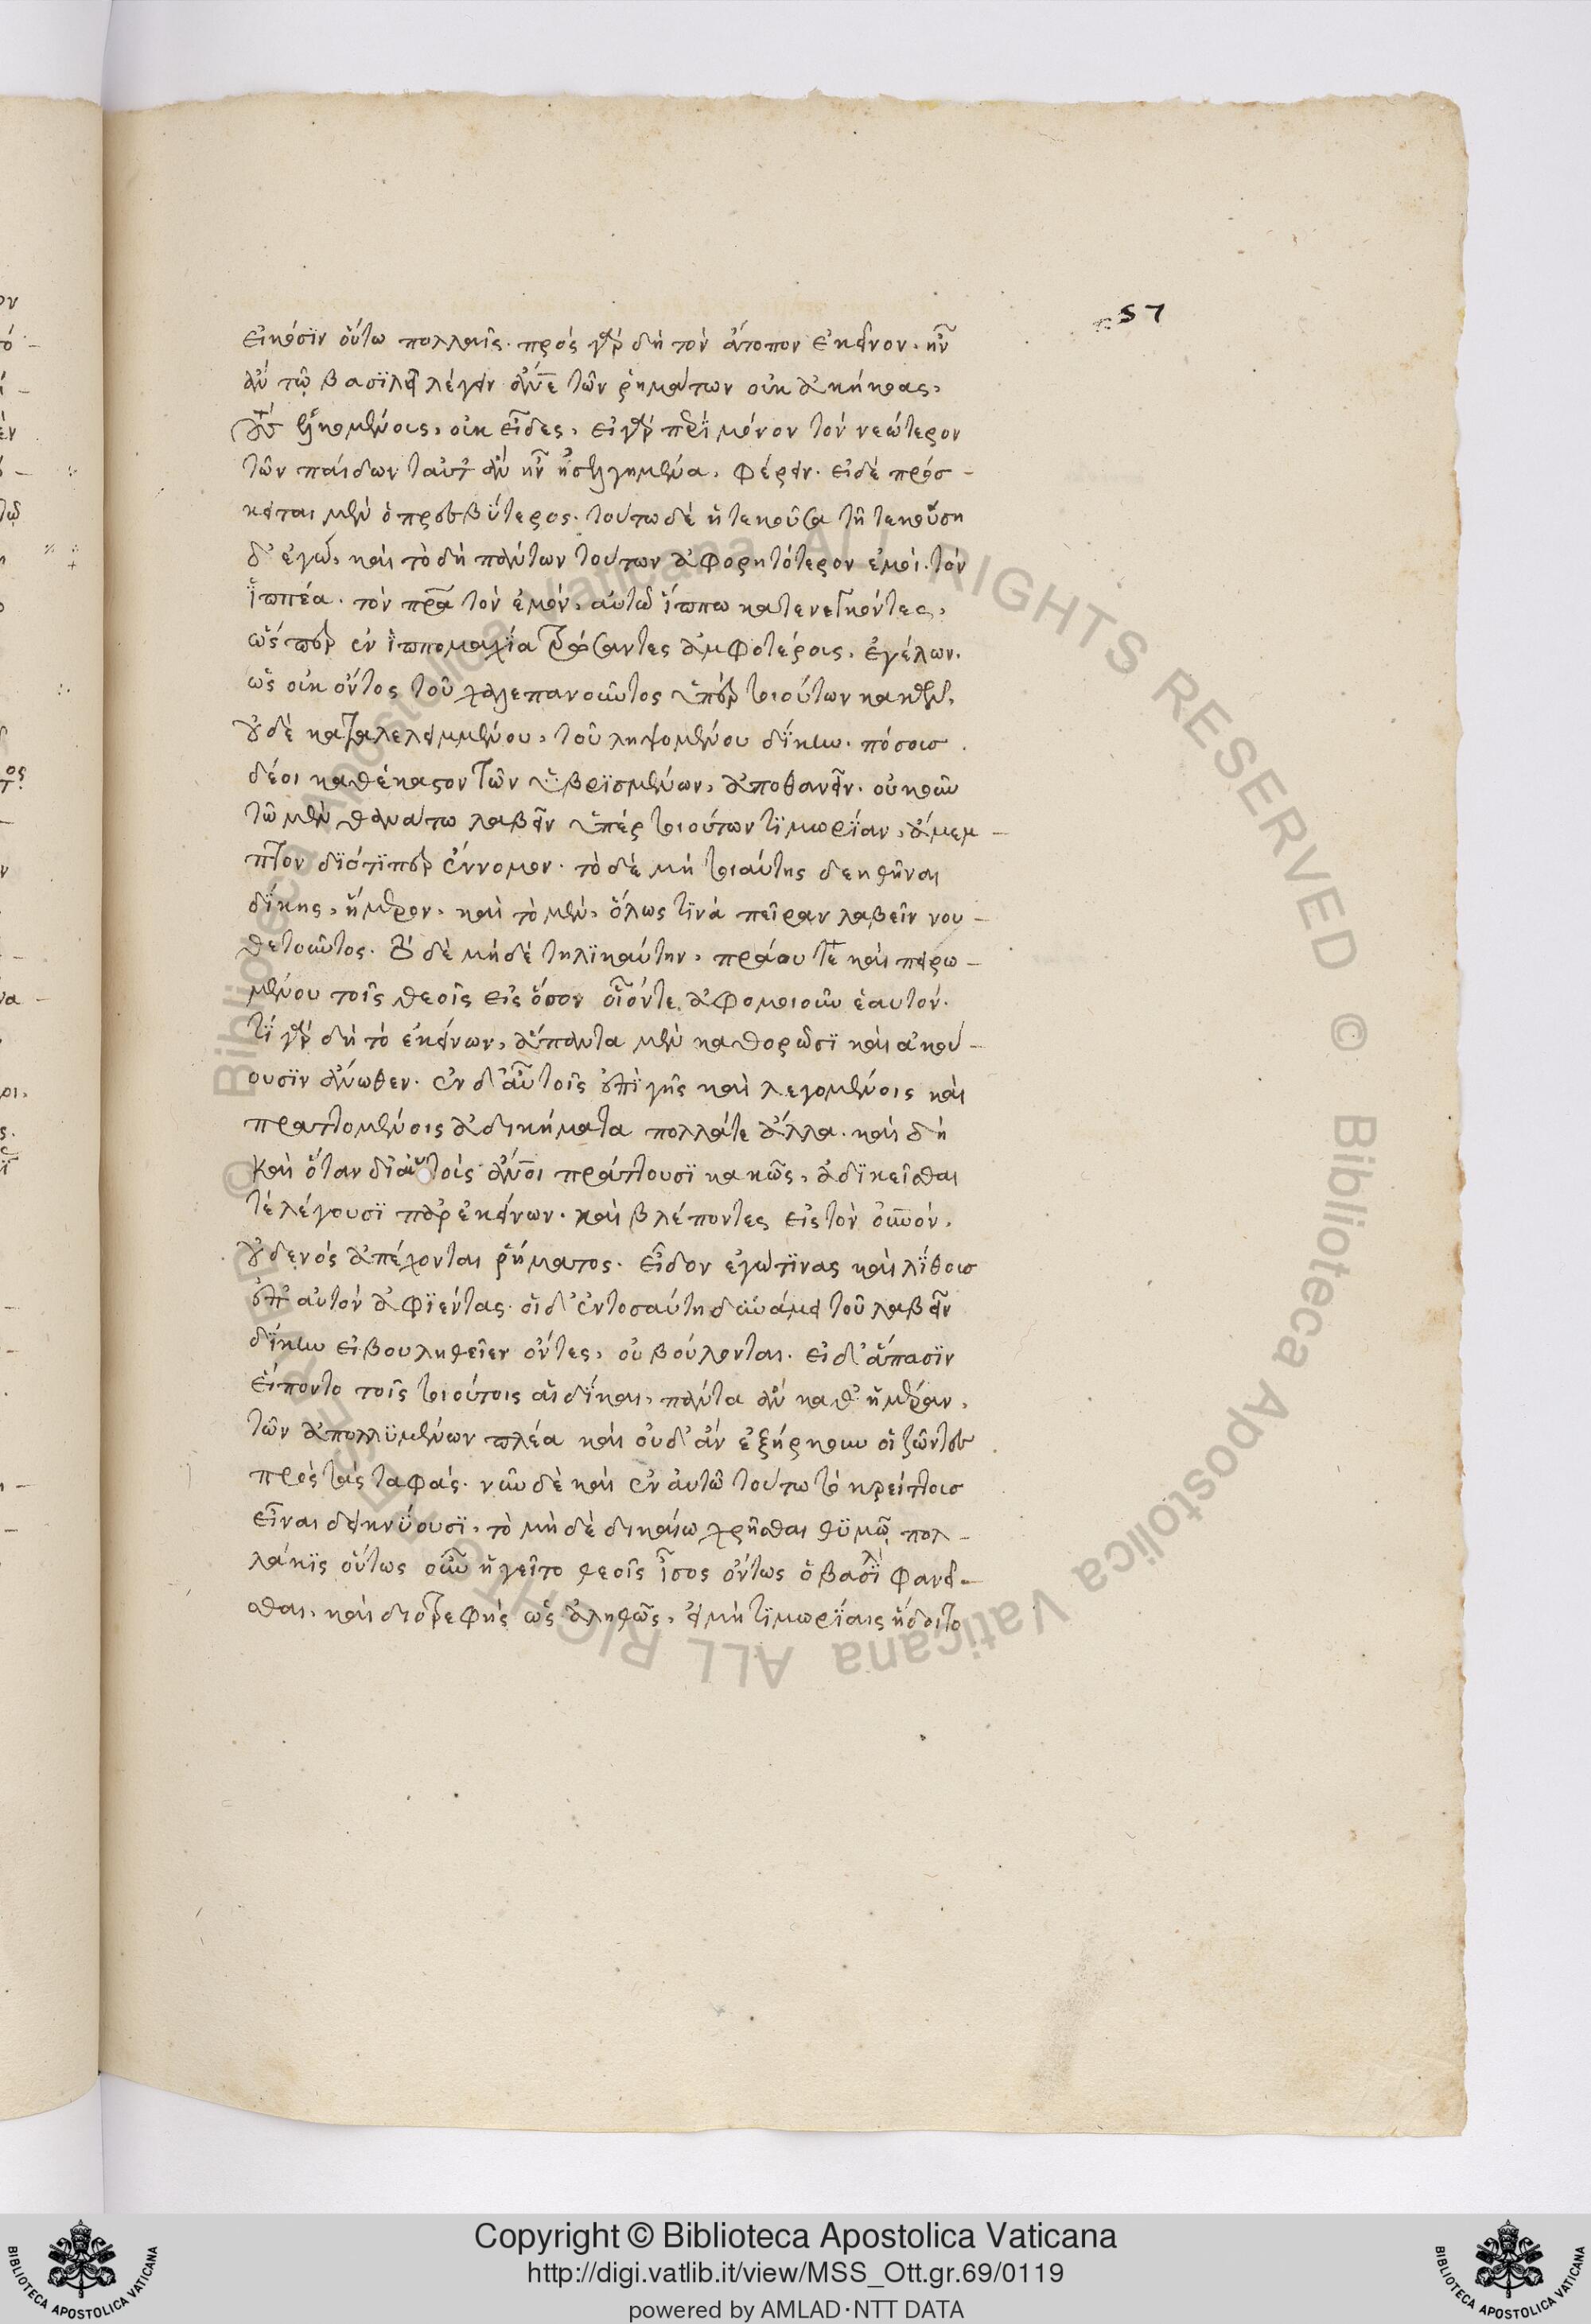 57
εἰκόσιν οὕτω πολλαῖς. πρὸς γὰρ δὴ τὸν ἄτοπον ἐκεῖνον. ἦν
ἂν τῷ βασιλεῖ λέγειν ἄνε τῶν ῥημάτων οὐκ ἀκήκοας,
εἰκομένοις, οὐκ εἶδες, εἰ γὰρ περὶ μόνον τὸν νεώτερον
τῶν παίδων ταῦτ ἂν ἦν ἠσελγημένα, φέρειν. εἰ δὲ πρόσ-
κειται μὲν ὁ πρεσβύτερος. τούτω δὲ ἡ τεκοῦσα τῇ τεκούση
δ' ἐγώ, καὶ τὸ δὴ πάντων τούτων ἀφορητότερον ἐμοὶ. τὸν
ἱππέα. τὸν πρα τὸν ἐμὸν, αὐτῶ ἵππω κατενεγκόντες,
ὥσπερ ἐν ἱππομαχία τρώσαντες ἀμφοτέροις, ἐγέλων.
ὡς οὐκ ὄντος τοῦ χαλεπανοῦντος ὑπὲρ τοιούτων κακῶν,
οὐδὲ καταλελειμμένου, τοῦ ληψομένου δίκην. πόσοις
δέοι καθέκαστον τῶν ὑβρισμένων, ἀποθανεῖν. οὐκοῦν
τῶ μὲν θανάτω λαβεῖν ὑπὲρ τοιούτων τιμωρίαν, ἄμεμ-
πτον διότιπερ ἔννομον. τὸ δὲ μὴ τοιαύτης δεηθῆναι
δίκης, ἥμερον, καὶ τὸ μὲν, ὅλως τινὰ πεῖραν λαβεῖν νου-
θετοῦντος. τὸ δὲ μήδὲ τηλικαύτην, πράου τε καὶ πειρω-
μένου τοῖς θεοῖς εἰς ὅσον οἷόντε ἀφομοιοῦν ἑαυτόν.
τί γὰρ δὴ τὸ ἐκείνων, ἅπαντα μὲν καθορῶσι καὶ ἀκού-
ουσιν ἄνωθεν. ἐν δ' αὐτοῖς ἐπὶ γῆς καὶ λεγομένοις καὶ
πραττομένοις ἀδικήματα πολλάτε ἄλλα. καὶ δὴ
καὶ ὅταν δι' αὑτοὺς ἄνοι πράττουσι κακῶς, ἀδικεῖσθαι
τὲ λέγουσι παρ' ἐκείνων. καὶ βλέποντες εἰς τὸν οὐνον,
οὐδενὸς ἀπέχονται ῥήματος. εἶδον ἐγώ τινας καὶ λίθους
ἐπ' αὐτὸν ἀφιέντας. οἱ δ' ἐν τοσαύτη δυνάμει τοῦ λαβεῖν
δίκην εἰ βουληθεῖεν ὄντες, οὐ βούλονται. εἰ δ' ἅπασιν
εἵποντο τοῖς τοιούτοις αἱ δίκαι, πάντα ἂν καθ' ἡμέραν,
τῶν ἀπολλυμένων πλέα καὶ οὐδ' ἂν ἐξήρκουν οἱ ζῶντες
πρὸς τὰς ταφάς. νῦν δὲ καὶ ἐν αὐτῶ τούτω τὸ κρείττους
εἶναι δεικνύουσι, τὸ μὴ δὲ δικαίω χρῆσθαι θυμῷ, πολ-
λάκις οὕτως οὖν ἡγεῖτο θεοῖς ἴσος ὄντως ὁ βασιλ φανεῖ-
σθαι, καὶ διοτρεφὴς ὡς ἀληθῶς, εἰ μὴ τιμωρίαις ἥδοιτο
Copyright © Biblioteca Apostolica Vaticana
http://digi.vatlib.it/view/MSS_Ott.gr.69/0119
powered by AMLAD·NTT DATA
BIBLIOTECA APOSTOLICA VATICANA
BIBLIOTECA APOSTOLICA VATICANA
© Biblioteca Apostolica Vaticana ALL RIGHTS RESERVED
© Biblioteca Apostolica Vaticana ALL RIGHTS RESERVED